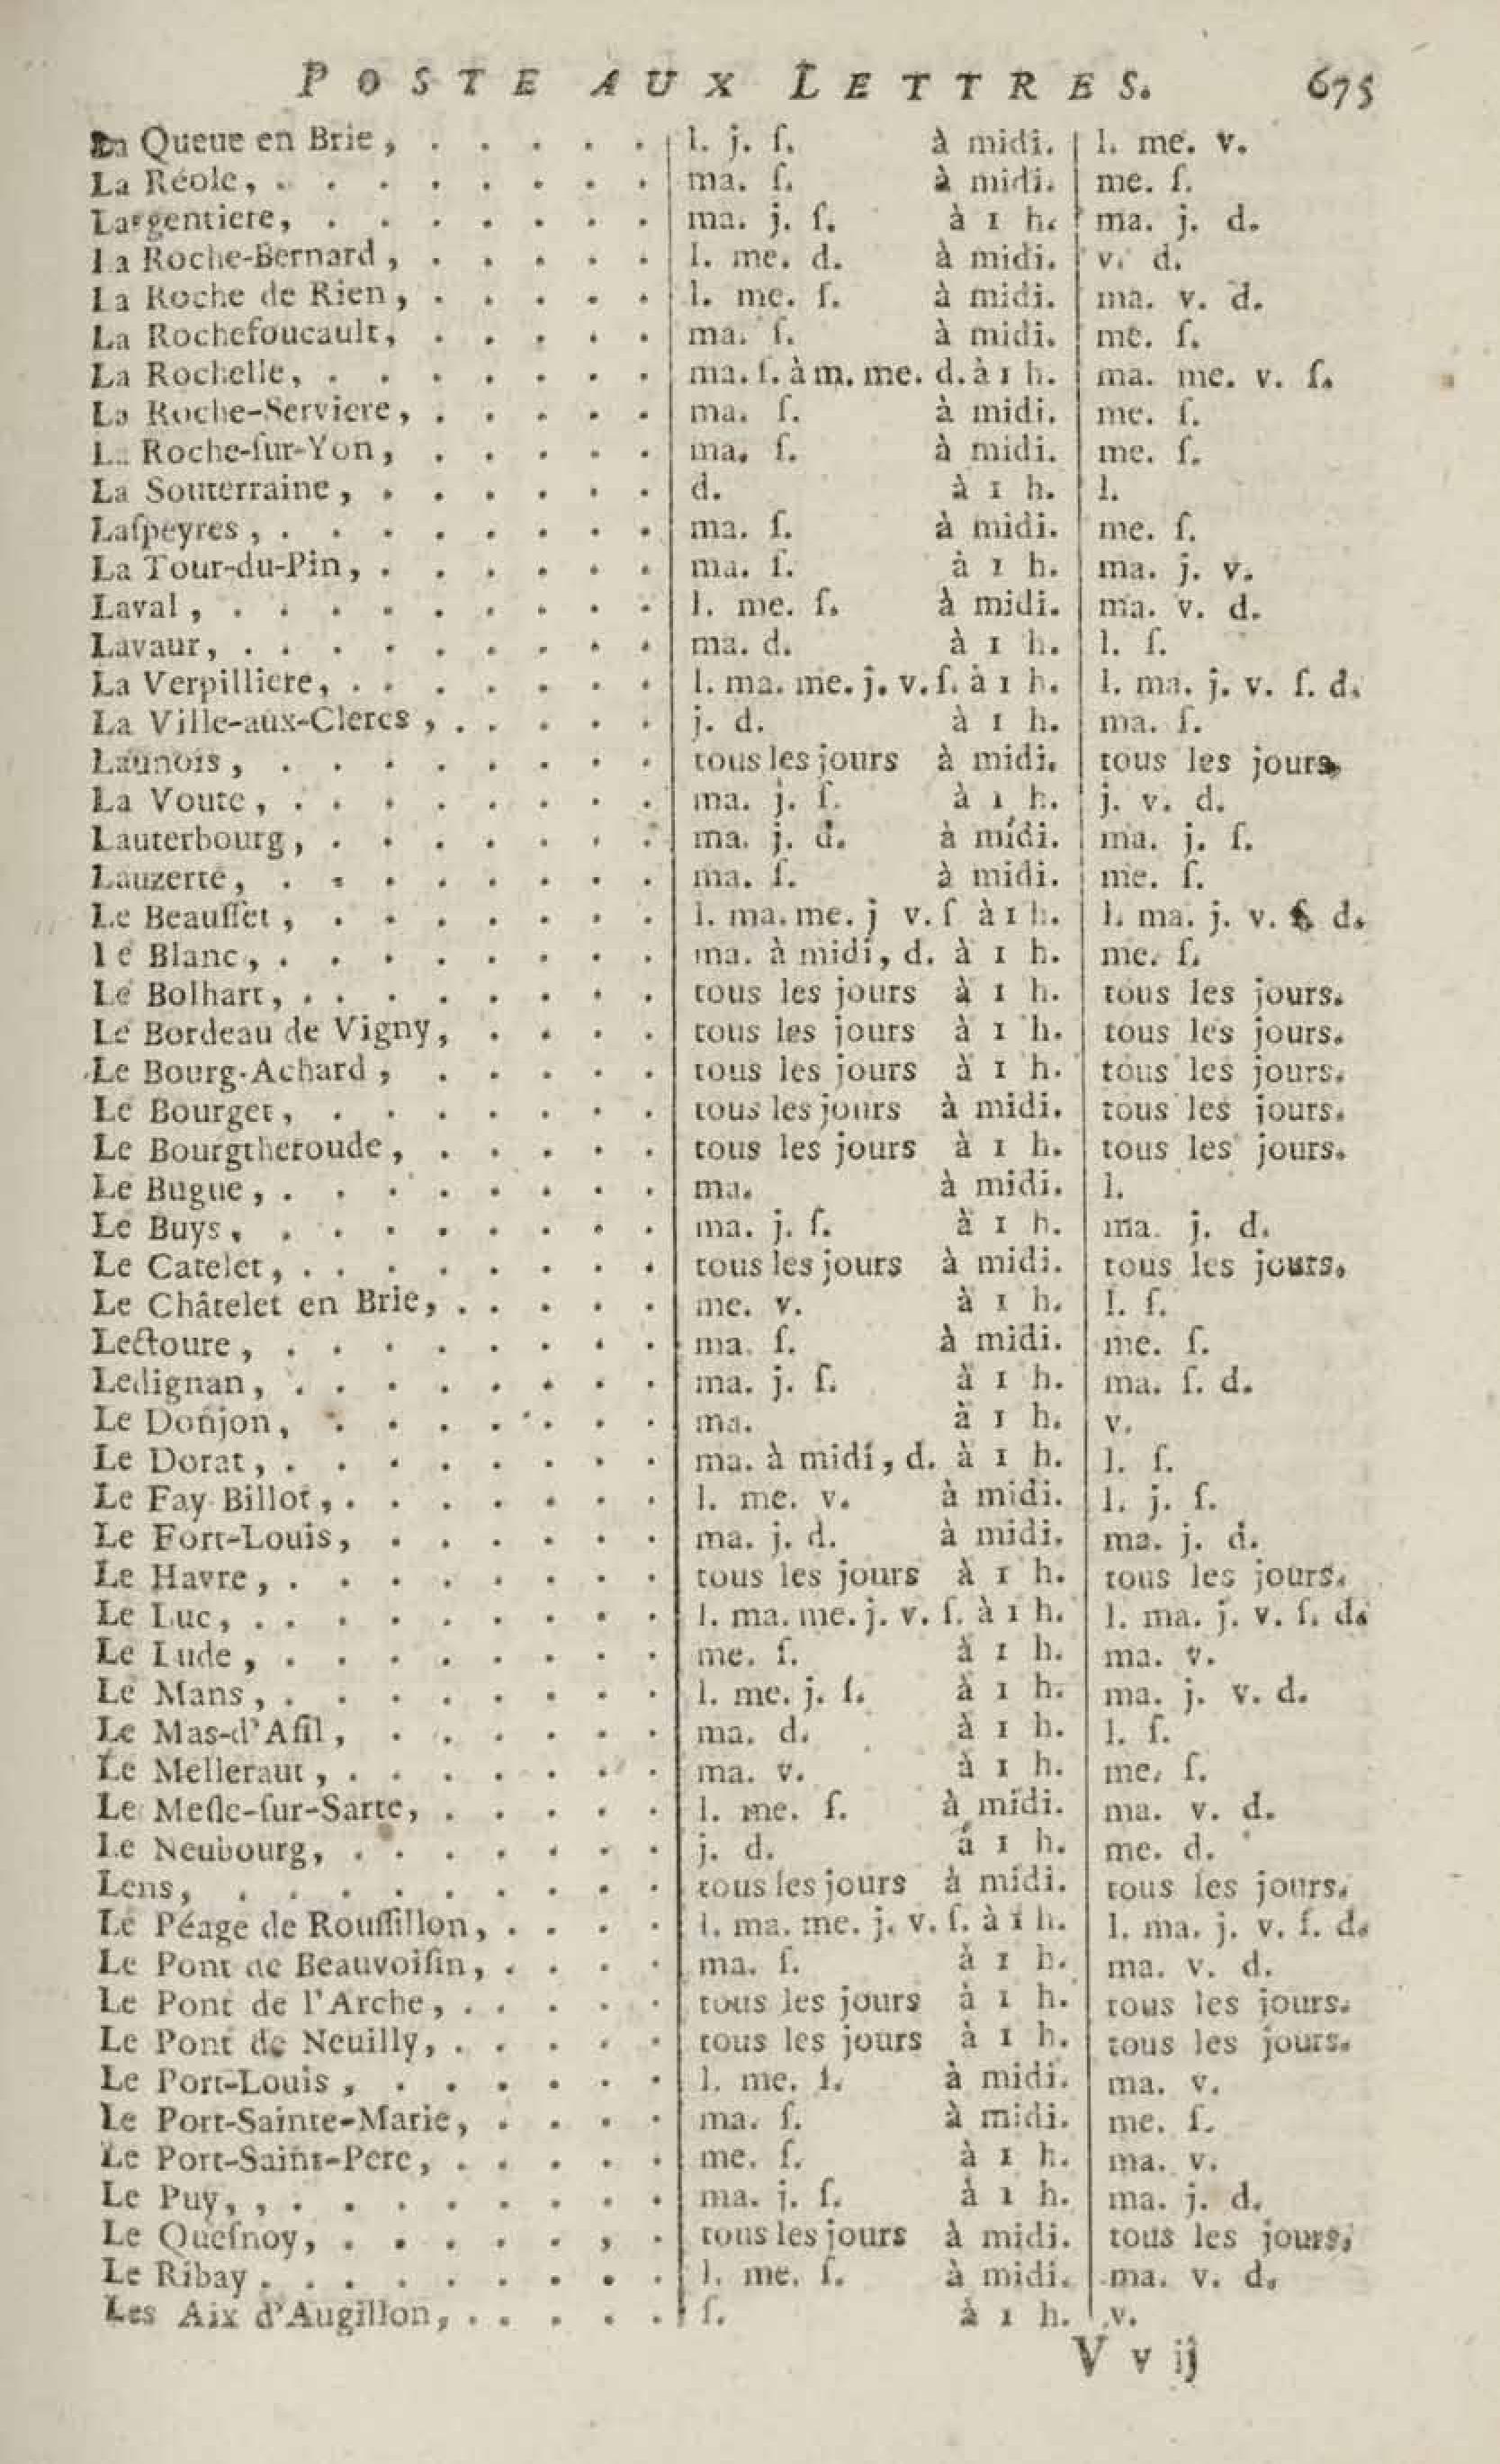 POSTE AUX LETTRES. 675
La Queue en Brie, . . . . . l. j. ſ. à midi. l. me. v.
La Réole, . . . . . . . . ma. ſ. à midi. me. ſ.
Largentiere, . . . . . . . ma. j. ſ. à 1 h. ma. j. d.
La Roche-Bernard, . . . . . l. me. d. à midi. v. d.
La Roche de Rien, . . . . . l. me. ſ. à midi. ma. v. d.
La Rochefoucault, . . . . . ma. ſ. à midi. me. ſ.
La Rochelle, . . . . . . . ma. ſ. à m. me. d. à 1 h. ma. me. v. ſ.
La Roche-Serviere, . . . . . ma. ſ. à midi. me. ſ.
La Roche-ſur-Yon, . . . . . ma. ſ. à midi. me. ſ.
La Souterraine, . . . . . . d. à 1 h. l.
Laſpeyres, . . . . . . . . ma. ſ. à midi. me. ſ.
La Tour-du-Pin, . . . . . . ma. ſ. à 1 h. ma. j. v.
Laval, . . . . . . . . . l. me. ſ. à midi. ma. v. d.
Lavaur, . . . . . . . . . ma. d. à 1 h. l. ſ.
La Verpilliere, . . . . . . . l. ma. me. j. v. ſ. à 1 h. l. ma. j. v. ſ. d.
La Ville-aux-Clercs, . . . . . j. d. à 1 h. ma. ſ.
Launois, . . . . . . . . tous les jours à midi. tous les jours.
La Voute, . . . . . . . . ma. j. ſ. à 1 h. j. v. d.
Lauterbourg, . . . . . . . ma. j. d. à midi. ma. j. ſ.
Lauzerte, . . . . . . . . ma. ſ. à midi. me. ſ.
Le Beauſſet, . . . . . . . l. ma. me. j v. ſ à 1 h. l. ma. j. v. ſ. d.
Le Blanc, . . . . . . . . ma. à midi, d. à 1 h. me. ſ.
Le Bolhart, . . . . . . . . tous les jours à 1 h. tous les jours.
Le Bordeau de Vigny, . . . . tous les jours à 1 h. tous les jours.
Le Bourg-Achard, . . . . . tous les jours à 1 h. tous les jours.
Le Bourget, . . . . . . . tous les jours à midi. tous les jours.
Le Bourgtheroude, . . . . . tous les jours à 1 h. tous les jours.
Le Bugue, . . . . . . . . ma. à midi. l.
Le Buys, . . . . . . . . ma. j. ſ. à 1 h. ma. j. d.
Le Catelet, . . . . . . . . tous les jours à midi. tous les jours.
Le Châtelet en Brie, . . . . . me. v. à 1 h. l. ſ.
Lectoure, . . . . . . . . ma. ſ. à midi. me. ſ.
Ledignan, . . . . . . . . ma. j. ſ. à 1 h. ma. ſ. d.
Le Donjon, . . . . . . . ma. à 1 h. v.
Le Dorat, . . . . . . . . ma. à midi, d. à 1 h. l. ſ.
Le Fay Billot, . . . . . . . l. me. v. à midi. l. j. ſ.
Le Fort-Louis, . . . . . . ma. j. d. à midi. ma. j. d.
Le Havre, . . . . . . . . tous les jours à 1 h. tous les jours.
Le Luc, . . . . . . . . . l. ma. me. j. v. ſ. à 1 h. l. ma. j. v. ſ. d.
Le Lude, . . . . . . . . me. ſ. à 1 h. ma. v.
Le Mans, . . . . . . . . l. me. j. ſ. à 1 h. ma. j. v. d.
Le Mas-d'Aſil, . . . . . . ma. d. à 1 h. l. ſ.
Le Melleraut, . . . . . . . ma. v. à 1 h. me. ſ.
Le Meſle-ſur-Sarte, . . . . . l. me. ſ. à midi. ma. v. d.
Le Neubourg, . . . . . . . j. d. à 1 h. me. d.
Lens, . . . . . . . . . tous les jours à midi. tous les jours.
Le Péage de Rouſſillon, . . . . l. ma. me. j. v. ſ. à 1 h. l. ma. j. v. ſ. d.
Le Pont de Beauvoiſin, . . . . ma. ſ. à 1 h. ma. v. d.
Le Pont de l'Arche, . . . . . tous les jours à 1 h. tous les jours.
Le Pont de Neuilly, . . . . . tous les jours à 1 h. tous les jours.
Le Port-Louis, . . . . . . l. me. ſ. à midi. ma. v.
Le Port-Sainte-Marie, . . . . ma. ſ. à midi. me. ſ.
Le Port-Saint-Pere, . . . . . me. ſ. à 1 h. ma. v.
Le Puy, , . . . . . . . . ma. j. ſ. à 1 h. ma. j. d.
Le Queſnoy, . . . . . , . tous les jours à midi. tous les jours.
Le Ribay . . . . . . . . . l. me. ſ. à midi. ma. v. d.
Les Aix d'Augillon, . . . . . ſ. à 1 h. v.
V v ij